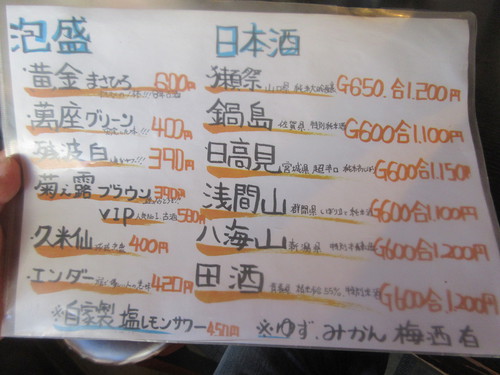 泡盛
黄金まさひろ 600円
萬座グリーン 400円
残波白 390円
菊之露ブラウン 390円
VIP 580円
久米仙 400円
エンダー 420円
※自家製 塩レモンサワー 450円
日本酒
獺祭 山口県 G650.合1.200円
鍋島 佐賀県 特別純米酒 G600合1.100円
日高見 宮城県 超辛口 G600合1.150円
浅間山 群馬県 純米酒 G600合1.100円
八海山 新潟県 特別本醸造 G600合1.200円
田酒 青森県 特別純米酒 G600合1.200円
※ゆず.みかん 梅酒有